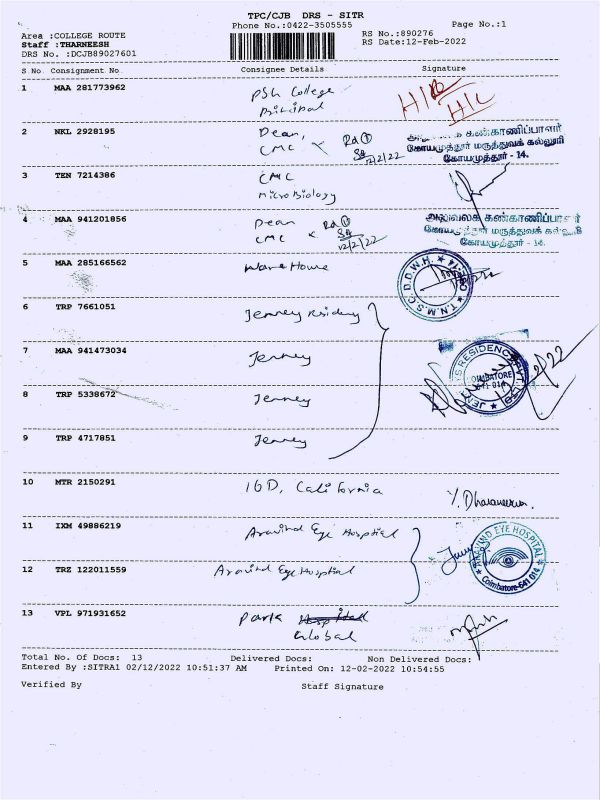 TPC/CJB DRS - SITR
Phone No.:0422-3505555
Page No.:1
Area :COLLEGE ROUTE
RS No.:890276
Staff : THARNEESH
RS Date:12-Feb-2022
DRS No. :DCJB89027601
S No. Consignment No. Consignee Details Signature
1 MAA 281773962 PSG College
Principal
2 NKL 2928195 Dean,
CMC
12/2/22
அலுவலக கண்காணிப்பாளர்
கோயமுத்தூர் மருத்துவக் கல்லூரி
கோயமுத்தூர் - 14.
3 TEN 7214386 CMC
MicroBiology
4 MAA 941201856 Dean
CMC
12/2/22
அலுவலக கண்காணிப்பாளர்
கோயமுத்தூர் மருத்துவக் கல்லூரி
கோயமுத்தூர் - 14.
5 MAA 285166562 Ware House
T.N.M.S.C.D.D.W.H.
6 TRP 7661051 Jenney Residency
7 MAA 941473034 Jenney
RESIDENCY
COIMBATORE
8 TRP 5338672 Jenney
9 TRP 4717851 Jenney
10 MTR 2150291 IGD, California
Y. Dharaneesh
11 IXM 49886219 Aravind Eye Hospital
ARAVIND EYE HOSPITAL
Coimbatore-641 014
12 TRZ 122011559 Aravind Eye Hospital
13 VPL 971931652 Park
Global
Total No. Of Docs: 13 Delivered Docs: Non Delivered Docs:
Entered By :SITRA1 02/12/2022 10:51:37 AM Printed On: 12-02-2022 10:54:55
Verified By Staff Signature